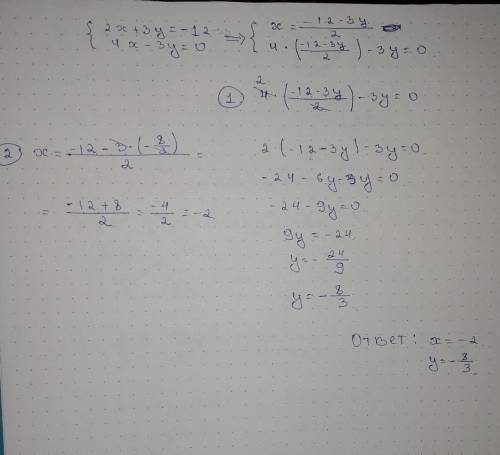 { 2x+3y=-12 => { x = (-12-3y)/2
{ 4x-3y=0 { 4*((-12-3y)/2)-3y=0
① 2 4 ((-12-3y)/2)-3y=0
2(-12-3y)-3y=0
-24-6y-3y=0
-24-9y=0
9y=-24
y=-24/9
y=-8/3
② x = (-12-3*(-8/3))/2 =
= (-12+8)/2 = -4/2 = -2
Ответ: x=-2
y=-8/3.